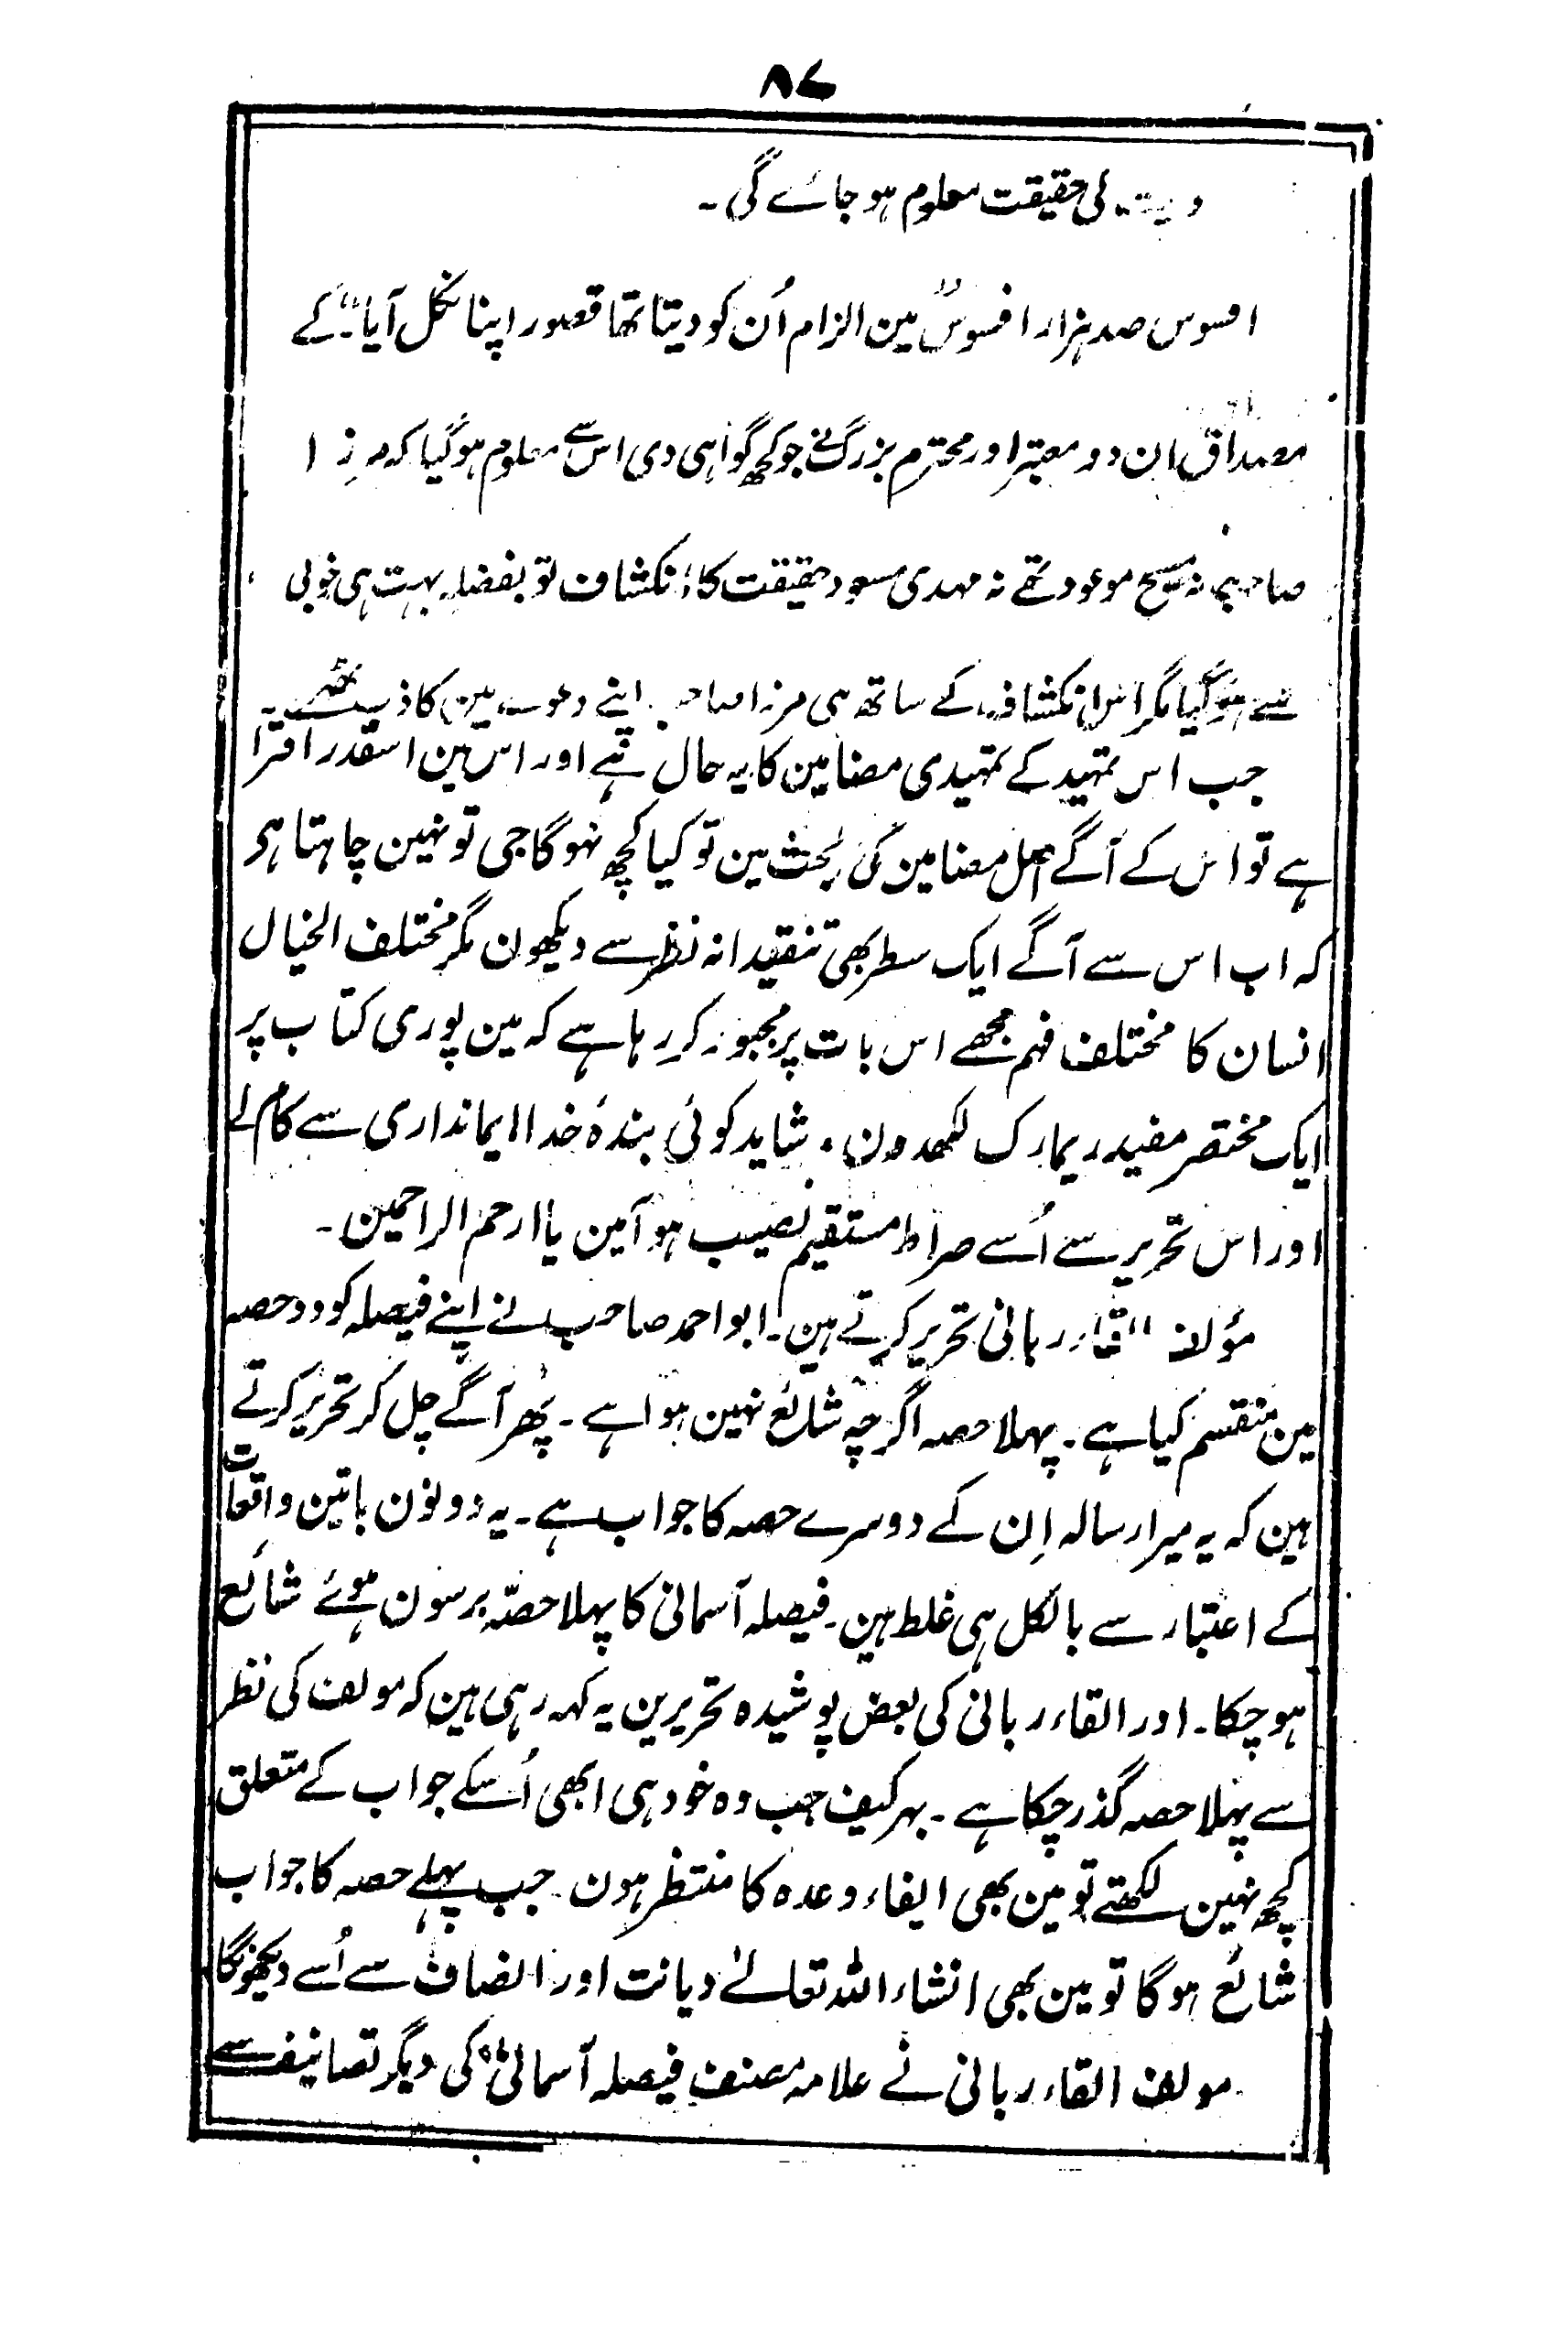 ۸۷
کی حقیقت معلوم ہو جائے گی۔
افسوس صد ہزار افسوس "مین الزام اُن کو دیتا تھا قصور اپنا نکل آیا"۔ کے
مصداق ان دو معتبر اور محترم بزرگ نے جو کچھ گواہی دی اس سے معلوم ہو گیا کہ مرزا
صاحب نہ مسیح موعود تھے نہ مہدی مسعود حقیقت کا انکشاف تو بفضلہ بہت ہی خوبی
سے ہو گیا مگر اس انکشاف کے ساتھ ہی مرزا صاحب اپنے دعوے مین کاذب
جب اس تمہید کے تمہیدی مضامین کا یہ حال ہے اور اس مین اسقدر افترا
ہے تو اس کے آگے اصل مضامین کی بحث مین تو کیا کچھ نہوگا جی تو نہین چاہتا ہو
کہ اب اس سے آگے ایک سطر بھی تنقیدانہ نظر سے دیکھون مگر مختلف الخیال
انسان کا مختلف فہم مجھے اس بات پر مجبور کر رہا ہے کہ مین پوری کتاب پر
ایک مختصر مفید ریمارک لکھدون۔ شاید کوئی بندۂ خدا ایمانداری سے کام لے
اور اس تحریر سے اُسے صراط مستقیم نصیب ہو آمین یا ارحم الراحمین۔
مؤلف القاء ربانی تحریر کرتے ہین۔ ابو احمد صاحب نے اپنے فیصلہ کو دو حصہ
مین منقسم کیا ہے۔ پہلا حصہ اگرچہ شائع نہین ہوا ہے۔ پھر آگے چل کر تحریر کرتے
ہین کہ یہ میرا رسالہ اِن کے دوسرے حصہ کا جواب ہے۔ یہ دونون باتین واقعات
کے اعتبار سے بالکل ہی غلط ہین۔ فیصلہ آسمانی کا پہلا حصّہ برسون ہوئے شائع
ہو چکا۔ اور القاء ربانی کی بعض پوشیدہ تحریرین یہ کہہ رہی ہین کہ مولف کی نظر
سے پہلا حصہ گذر چکا ہے۔ بہر کیف جب وہ خود ہی ابھی اُسکے جواب کے متعلق
کچھ نہین لکھتے تو مین بھی ایفاء وعدہ کا منتظر ہون۔ جب پہلے حصہ کا جواب
شائع ہوگا تو مین بھی انشاء اللہ تعالےٰ دیانت اور انصاف سے اُسے دیکھونگا
مولف القاء ربانی نے علامہ مصنف فیصلہ آسمانی کی دیگر تصانیف سے